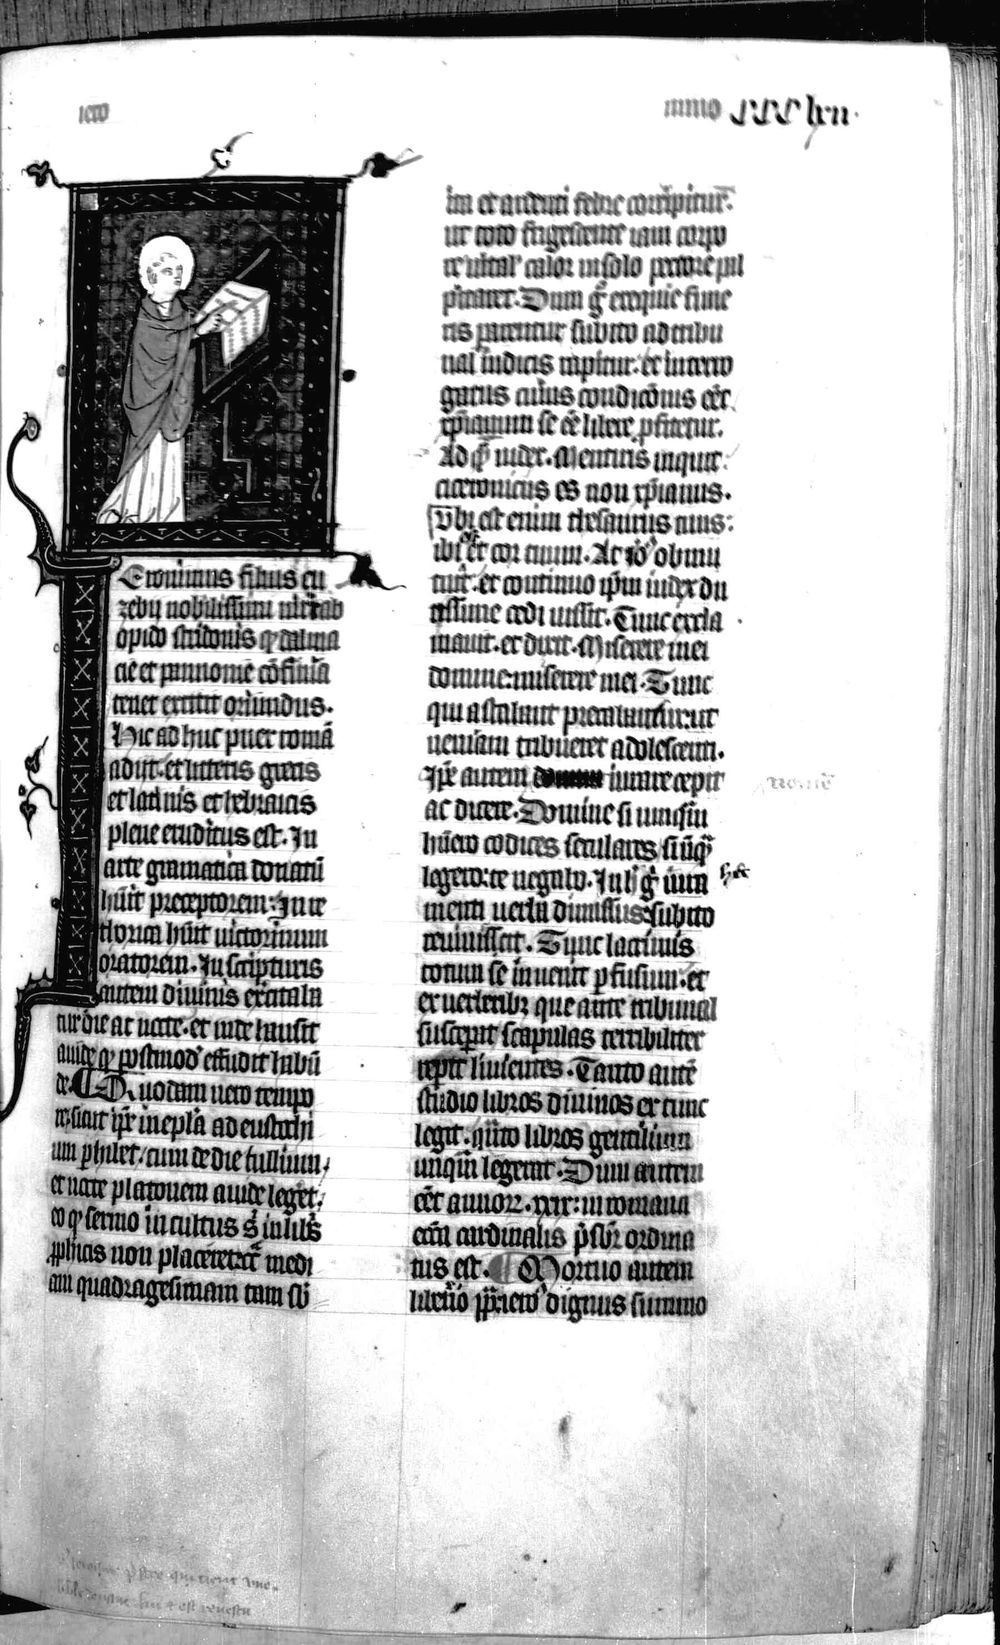 iero
nimo CCC lxii.
Eronimus filius eu
zebij nobilissimi uiri ab
opido stridonis qd dalma
cie et pannonie cõfinia
tenet extitit oriundus.
Hic ad huc puer romã
adiit. et litteris grecis
et latinis et hebraicis
plene eruditus est. In
arte gramatica donatũ
hũit preceptorem: In re
thorica hũit uictorinum
oratorem. In scripturis
autem diuinis exercitaba
tur die ac nocte. et inde hausit
auide qd postmod' effudit habũ
de. ¶ Quodam uero tempo
re. sicut ip̃e in epl̃a ad eustochi
um p hibet. cum de die tullium.
et nocte platonem auide leger̃et.
eo qd sermo incultus s̃ in libĩs
ꝓphicis non placeret. circã medi
am quadragesimam tam sũ
bita et ardenti febre corripitur.
ut toto frigescente iam corpo
re uitaľ calor in solo pectore pal
pitaret. Dum g̃ exequie fune
ris pararentur subito ad tribu
nal iudicis rapitur. et interro
gatus cuius condicõnis eẽt.
xp̃ianum se eẽ libere ꝓfitetur.
Ad qd iudex. Mentiris inquit.
ciceronicus es non xp̃ianus.
Vbi est enim thesaurus tuus:
ibi est et cor tuum. Ac iõ obmu
tuit. et continuo ip̃m iudex du
rissime cedi iussit. Tunc excla
mauit. et dixit. Miserere mei
domine: miserere mei. Tunc
qui astabant precabantur. ut
ueniam tribueret adolescenti.
Ip̃e autem iurare cepit
ac dicere. Domine si umquã
hũero codices seculares / si ũqã
legero: te negabo. In h̃ g̃ iura
hec
menti uerba dimissus: subito
reuiuiscit. Tunc lacrimis
totum se inuenit ꝑfusum. et
ex uerberibꝫ que ante tribunal
susceperat scapulas terribiliter
repit liuentes. Tanto autẽ
studio libros diuinos ex tunc
legit. q̃nto libros gentilium
unqũm legerat. Dum autem
eẽt annorꝝ. xxix: in romana
ecc̃a cardinalis p̃sbr̃ ordina
tus est. ¶ Mortuo autem
liberio pp̃. ieroˉ dignus summo